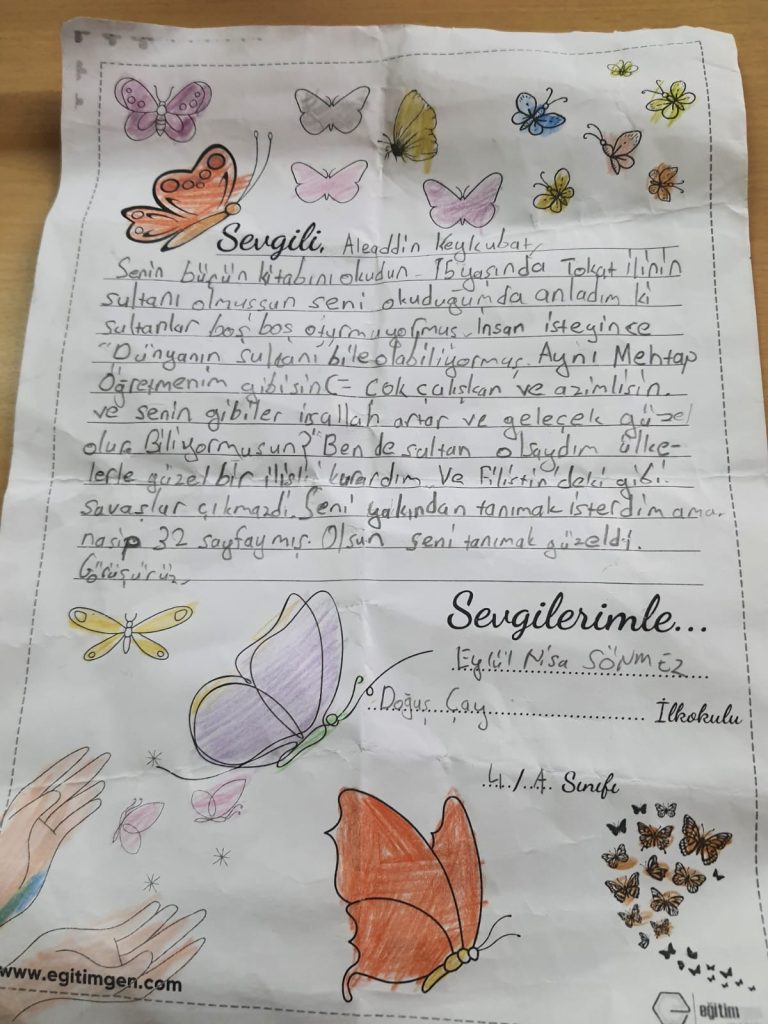 Sevgili, Aleaddin Keykubat,
Senin büçün kitabını okudun. 15 yaşında Tokat ilinin
sultanı olmuşsun seni okuduğumda anladım ki
sultanlar boş boş oturmuyormuş. İnsan isteyince
"Dünyanın sultanı bile olabiliyormuş. Aynı Mehtap
Öğretmenim gibisin (= Çok çalışkan ve azimlisin.
ve senin gibiler inşallah artar ve geleçek güzel
olur. Biliyormusun? Ben de sultan olsaydım ülke-
lerle güzel bir ilişki kurardım. Ve Filistin'deki gibi
savaşlar çıkmazdı. Seni yakından tanımak isterdim ama
nasip 32 sayfaymış. Olsun seni tanımak güzeldi.
Görüşürüz,
Sevgilerimle...
Eylül Nisa SÖNMEZ
Doğuş Çay İlkokulu
4./A. Sınıfı
www.egitimgen.com
eğitim